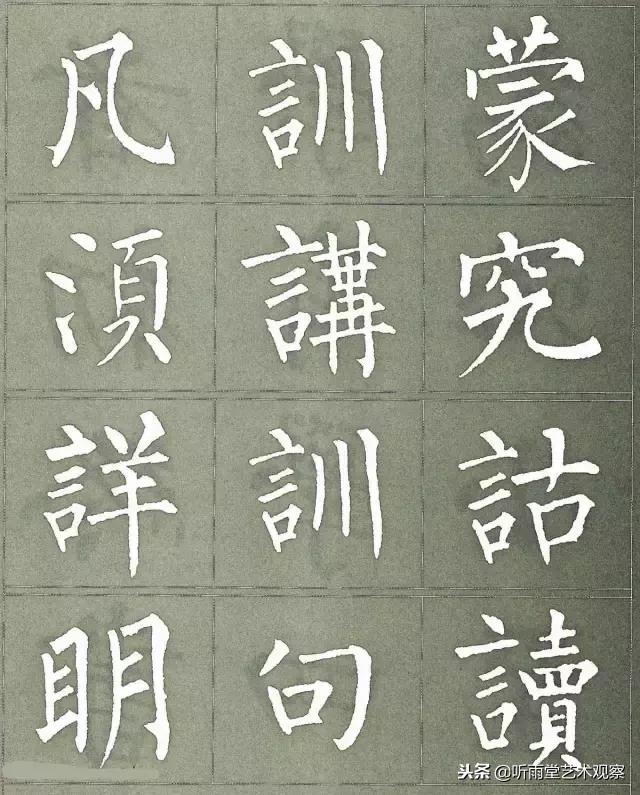 凡訓蒙
湏講究
詳訓詁
眀句讀
头条 @听雨堂艺术观察